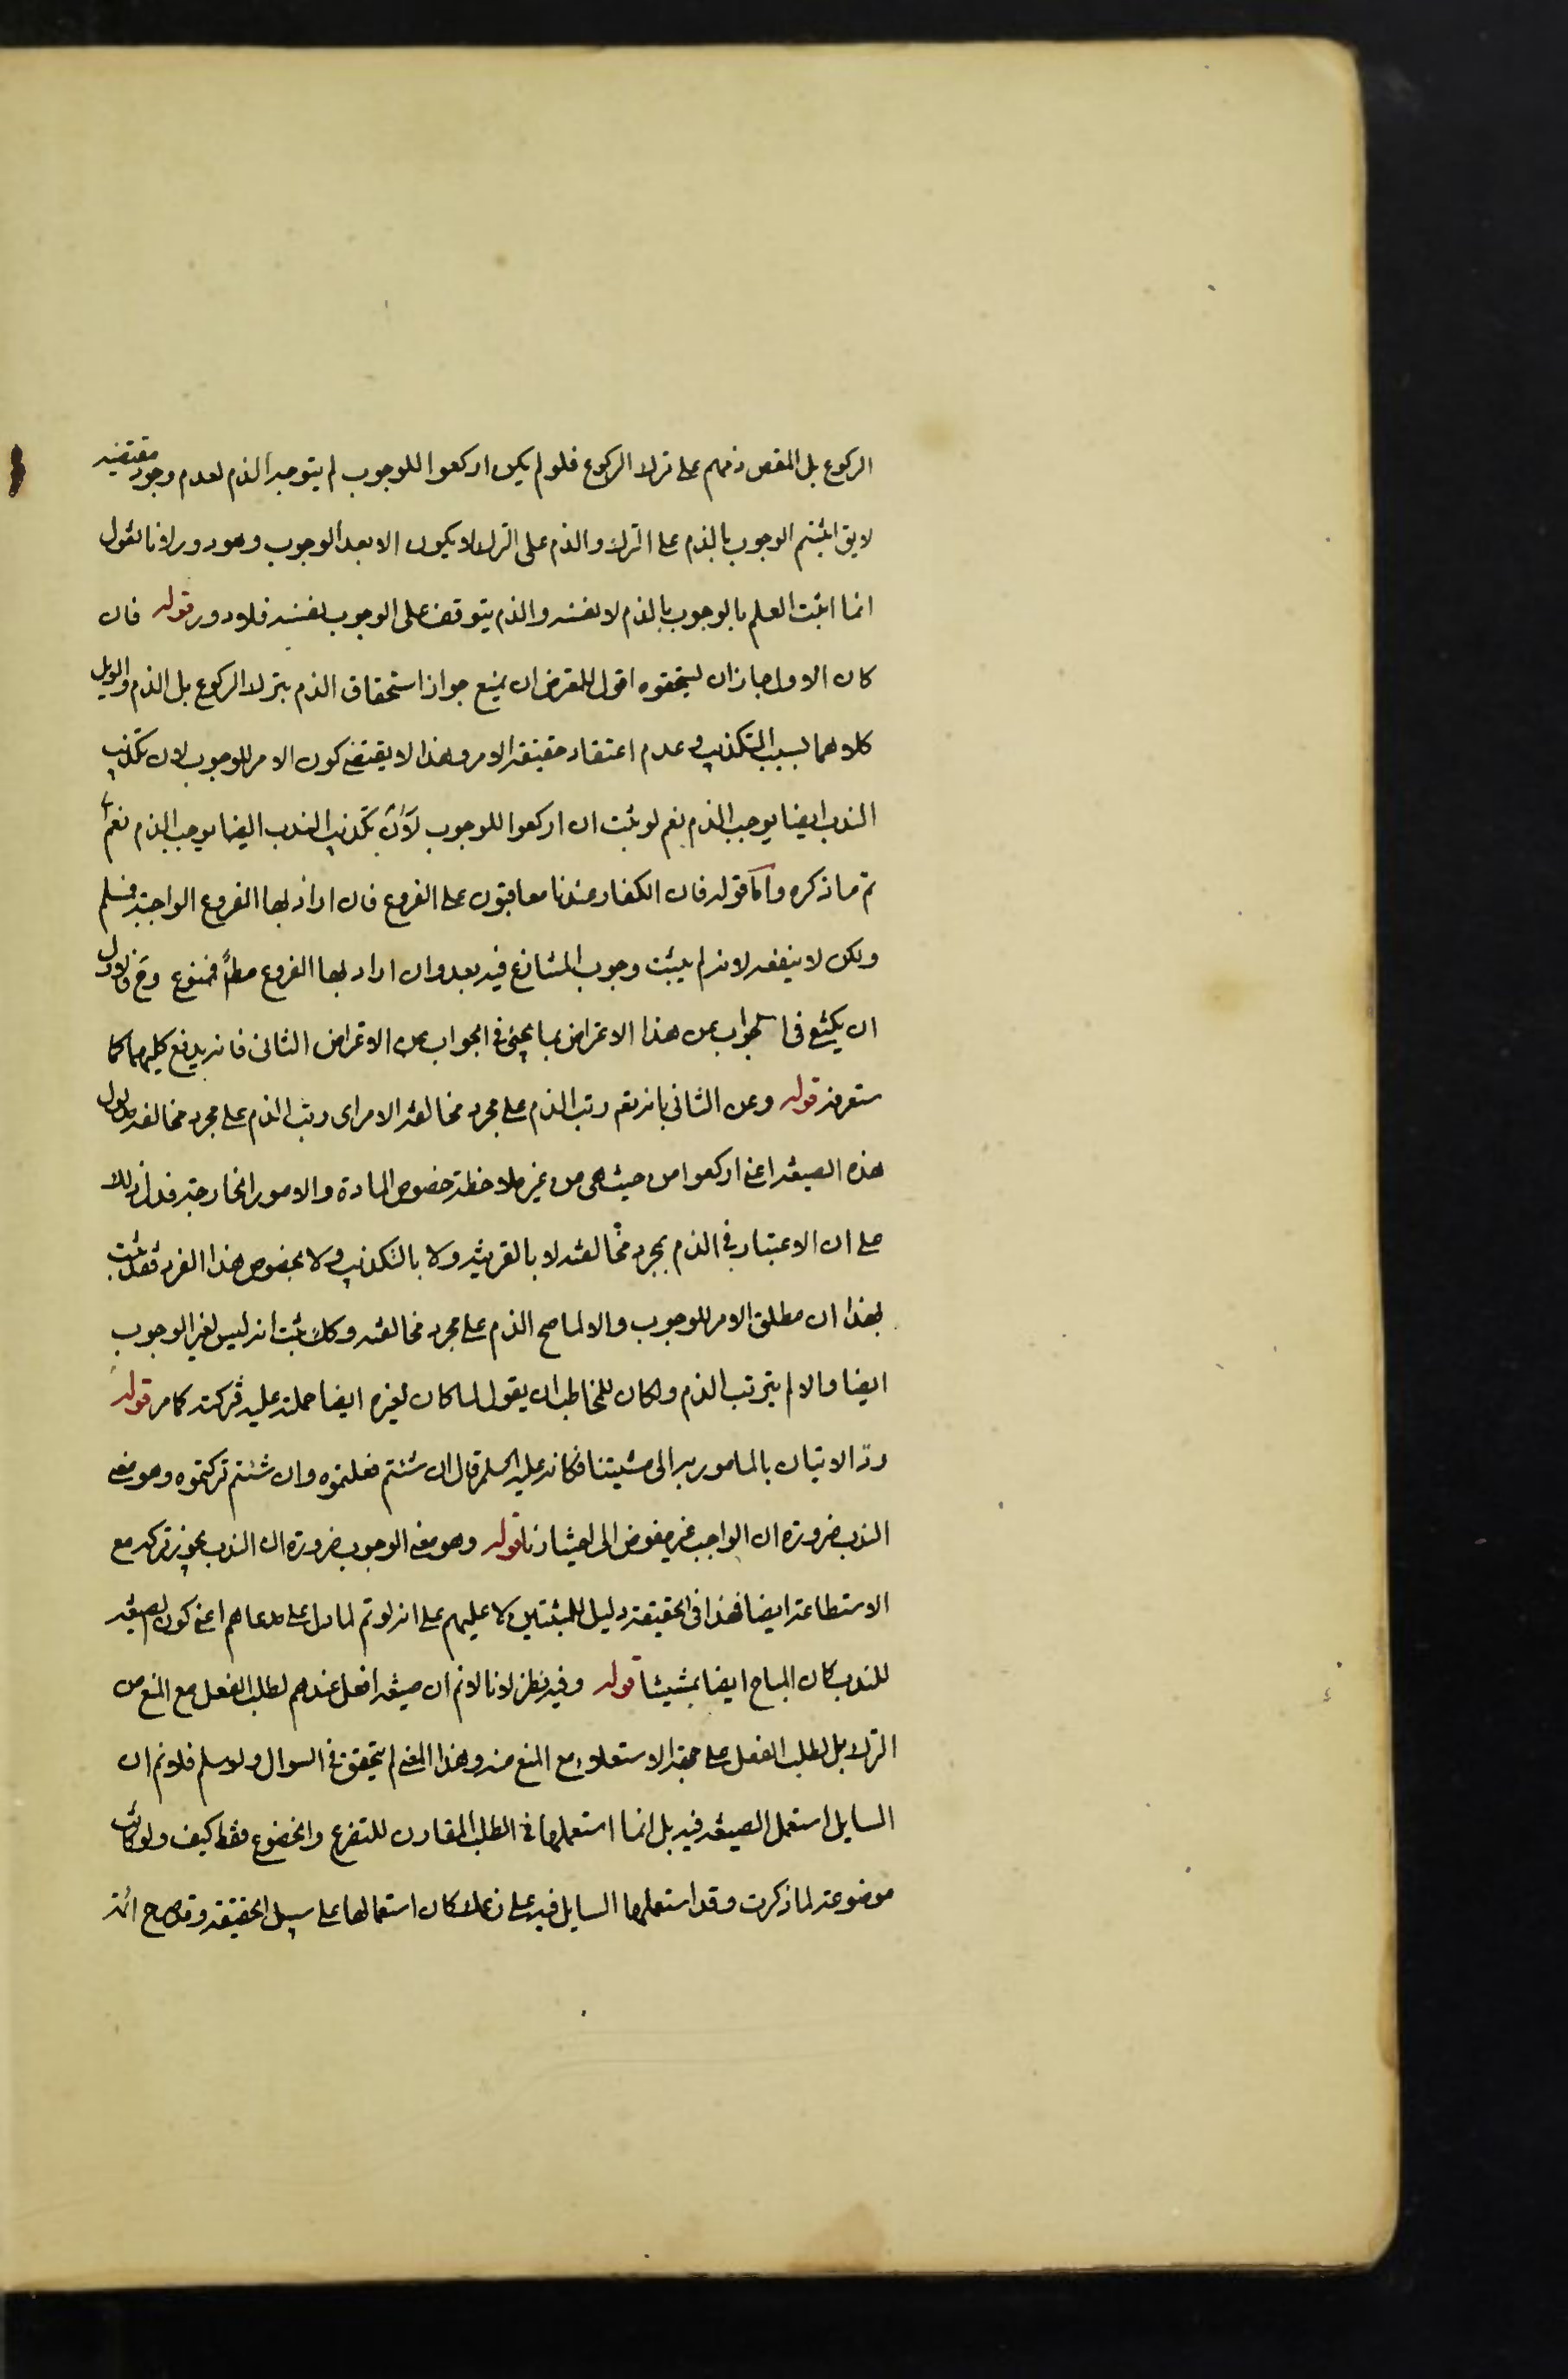 الركوع بل المقصد ذمهم على ترك الركوع فلو لم يكن اركعوا للوجوب لم يتوجه الذم لعدم وجود مقتضيه
لايق اثبتم الوجوب بالذم على الترك والذم على الترك لا يكون الا بعد الوجوب وهو دور لانا نقول
انما اثبت العلم بالوجوب بالذم لا نفسه والذم يتوقف على الوجوب نفسه فلا دور قوله فان
كان الاول جاز ان يستحقوه اقول للمعترض ان يمنع جواز استحقاق الذم بترك الركوع بل الذم والويل
كلاهما بسبب التكذيب وعدم اعتقاد حقيقة الامر وهذا لا يقتضى كون الامر للوجوب لان تكذيب
الندب ايضا يوجب الذم نعم لو ثبت ان اركعوا للوجوب لان تكذيب الندب ايضا يوجب الذم نعم
تم ما ذكره واما قوله فان الكفار عندنا معاقبون على الفروع فان اراد بها الفروع الواجبة فمسلم
ولكن لا ينفعه لانه لم يثبت وجوب المتنازع فيه بعد وان اراد بها الفروع مطلقا فممنوع وح فالاولى
ان يكتفى فى الجواب عن هذا الاعتراض بما يجئ فى الجواب عن الاعتراض الثانى فانه يدفع كليهما كما
ستعرفه قوله وعن الثانى بانه تعم رتب الذم على مجرد مخالفة الامر اى رتب الذم على مجرد مخالفة مدلول
هذه الصيغة اعنى اركعوا من حيث هى من غير ملاحظة خصوص المادة والامور الخارجة فدل ذلك
على ان الاعتبار فى الذم بمجرد مخالفته لا بالقرينة ولا بالتكذيب ولا بخصوص هذا الفرد فقد ثبت
بهذا ان مطلق الامر للوجوب والا لما صح الذم على مجرد مخالفته وكك ثبت انه ليس لغير الوجوب
ايضا والا لم يترتب الذم ولكان للمخاطب ان يقول لما كان لغيره ايضا حملته عليه فتركته كما مر قوله
ردّ الاتيان بالمامور به الى مشيتنا فكانه عليه السلم قال ان شئتم فعلتموه وان شئتم تركتموه وهو معنى
الندب ضرورة ان الواجب غير مفوض الى اختيارنا قوله وهو معنى الوجوب ضرورة ان الندب يجوز تركه مع
الاستطاعة ايضا فهذا فى الحقيقة دليل للمثبتين لا عليهم على انه لو تم لما دل على مدعاهم اعنى كون الصيغة
للندب لان المباح ايضا بمشيتنا قوله وفيه نظر لانا لانم ان صيغة افعل عندهم لطلب الفعل مع المنع من
الترك بل لطلب الفعل على جهة الاستعلاء مع المنع منه وهذا المعنى لم يتحقق فى السوال ولو سلم فلانم ان
السايل استعمل الصيغة فيه بل انما استعملها فى الطلب المقارن للتضرع والخضوع فقط كيف ولو كانت
موضوعة لما ذكرت وقد استعملها السايل فيه على زعمك كان استعمالها على سبيل الحقيقة وقد صرح ائمة